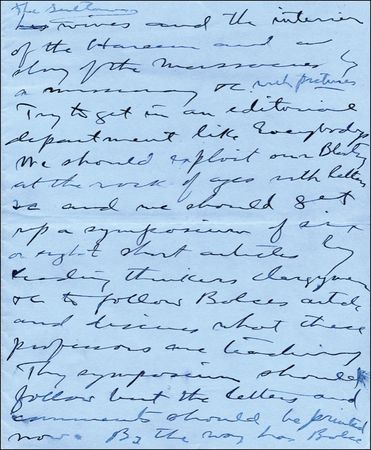 The Sultans
his wives and the interior
of the Harem and a
story of the Massacres by
a missionary &c with pictures
Try to get in an editorial
department like Everybodys
We should exploit our Blasting
at the rock of ages with letters
&c and we should get
up a symposium of six
or eight short articles by
leading thinkers clergymen
&c to follow Bolces article
and discuss what these
professors are teaching
This symposium should
follow but the letters and
comments should be printed
now. By the way has Bolce